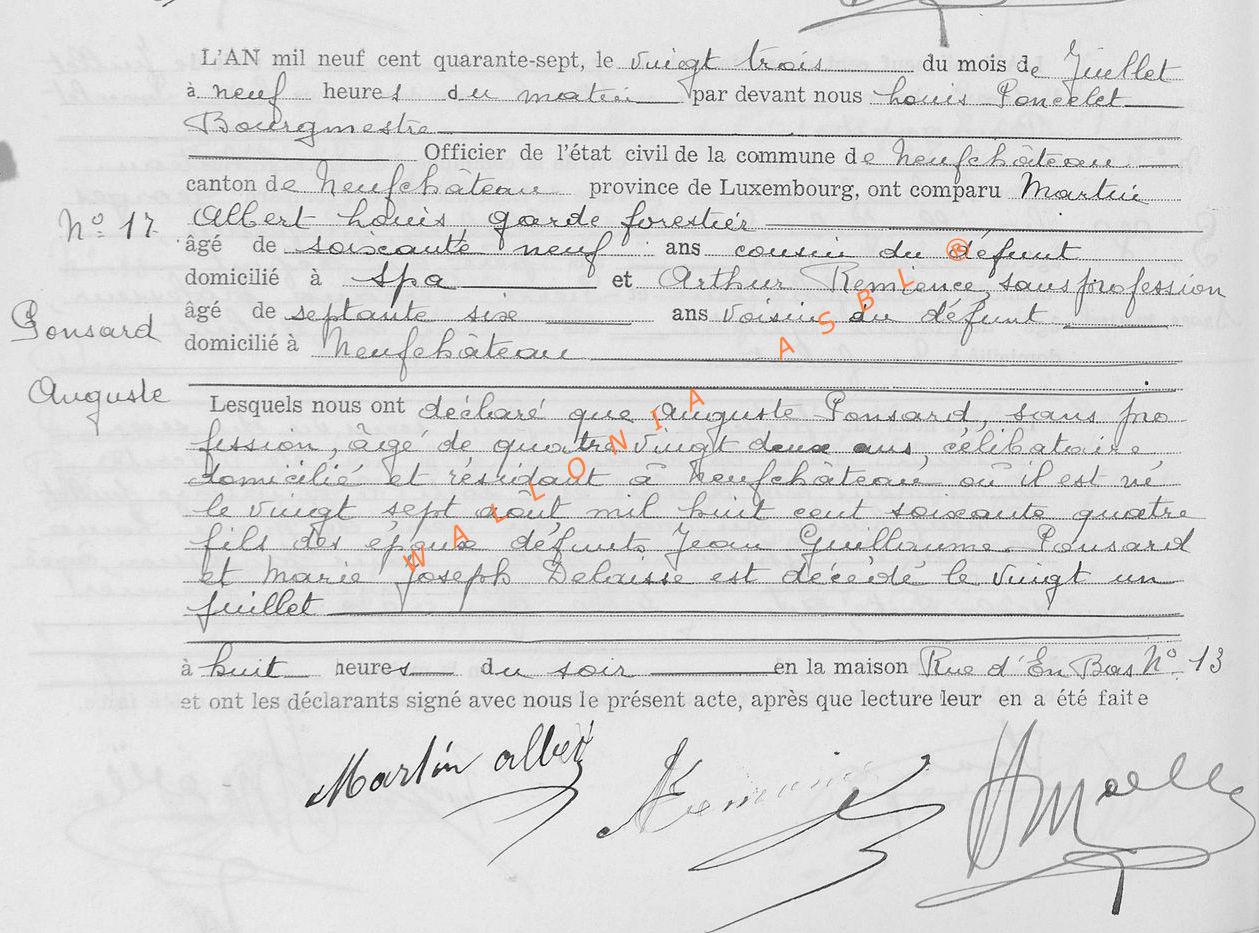 L'AN mil neuf cent quarante-sept, le vingt trois du mois de Juillet
à neuf heures du matin par devant nous Louis Poncelet
Bourgmestre
Officier de l'état civil de la commune de Neufchâteau
canton de Neufchâteau province de Luxembourg, ont comparu Martin
No 17 Albert Louis, garde forestier
âgé de soixante neuf ans cousin du défunt
domicilié à Spa et Arthur Remience, sans profession
Ponsard
âgé de septante six ans voisin du défunt
domicilié à Neufchâteau
Auguste
Lesquels nous ont déclaré que Auguste Ponsard, sans pro
fession, âgé de quatre vingt deux ans, célibataire
domicilié et résidant à Neufchâteau où il est né
le vingt sept août mil huit cent soixante quatre
fils des époux défunts Jean Guillaume Ponsard
et Marie Joseph Delaisse est décédé le vingt un
juillet
à huit heures du soir en la maison Rue d'En Bas No 13
et ont les déclarants signé avec nous le présent acte, après que lecture leur en a été faite
Martin Albert
Remience
WALLONIA ASBL ®